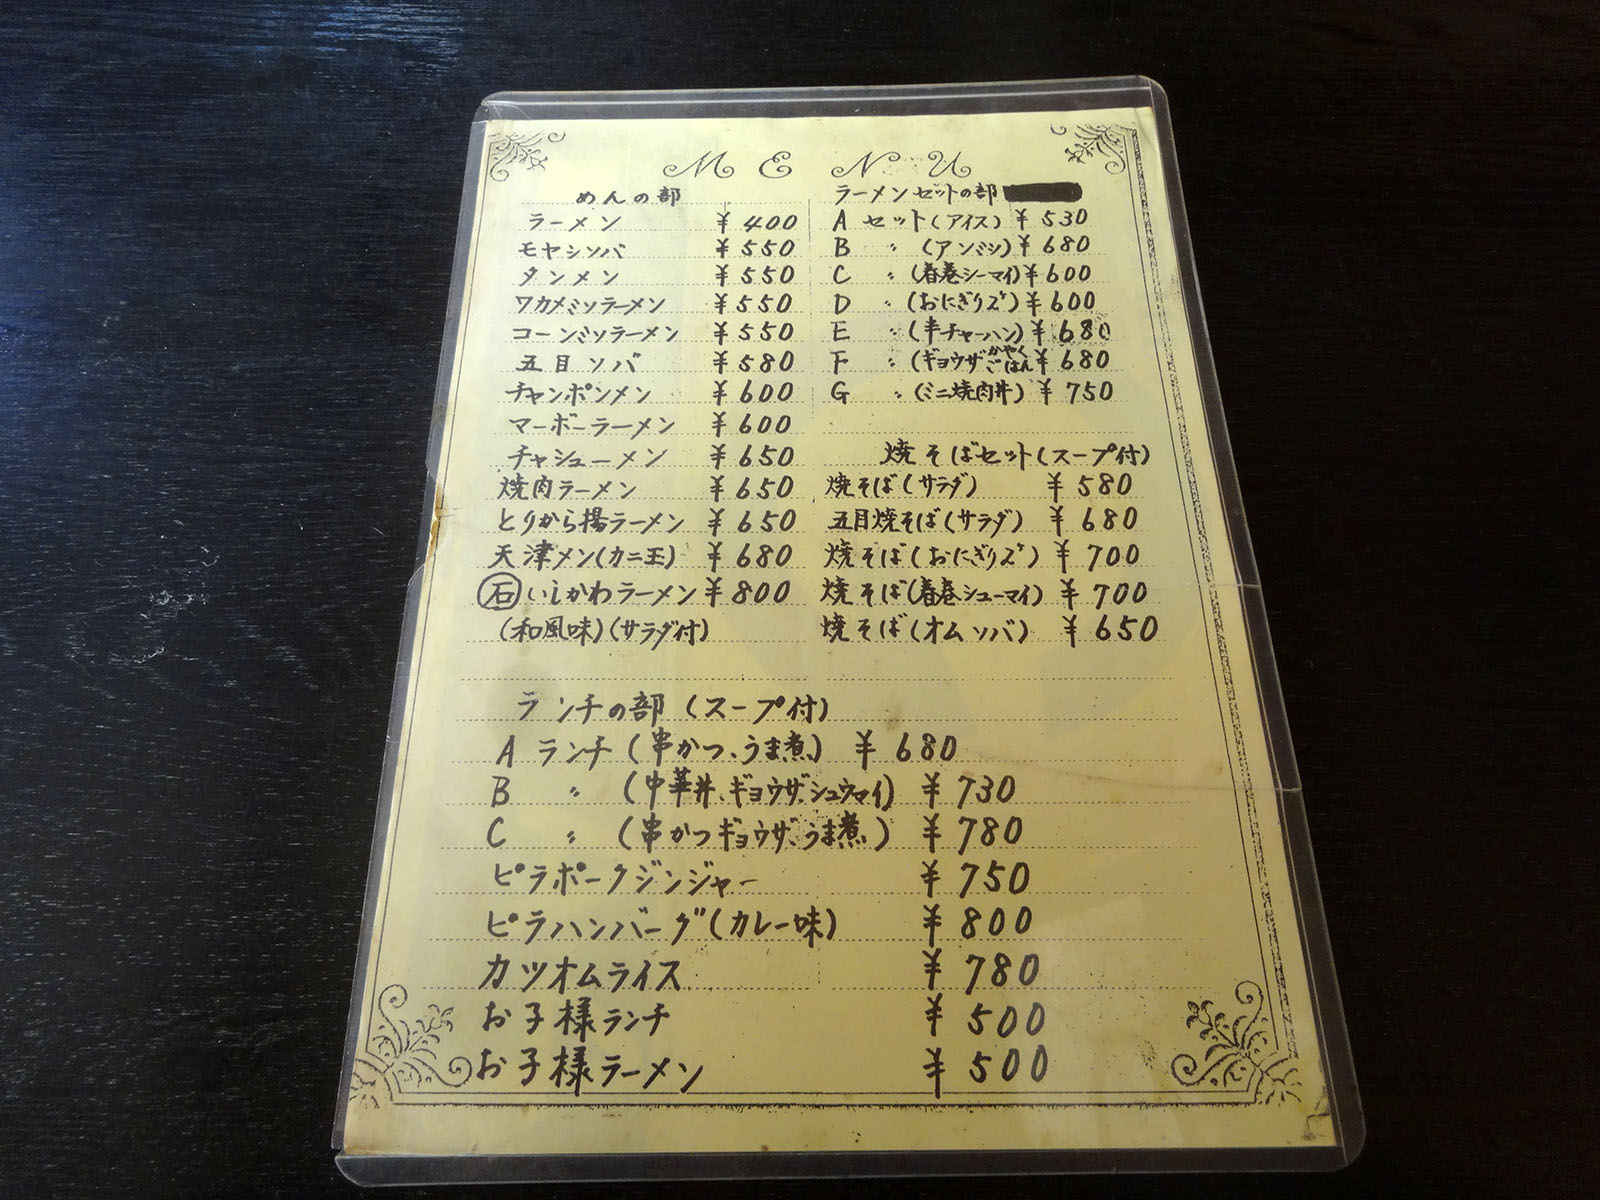 MENU
めんの部
ラーメン ¥400
モヤシソバ ¥550
タンメン ¥550
ワカメミソラーメン ¥550
コーンミソラーメン ¥550
五目ソバ ¥580
チャンポンメン ¥600
マーボーラーメン ¥600
チャシューメン ¥650
焼肉ラーメン ¥650
とりから揚ラーメン ¥650
天津メン(カニ玉) ¥680
石 いしかわラーメン ¥800
(和風味)(サラダ付)
ラーメンセットの部
A セット(アイス) ¥530
B 〃 (アンミツ) ¥680
C 〃 (春巻シーマイ) ¥600
D 〃 (おにぎり2ヶ) ¥600
E 〃 (半チャーハン) ¥680
F 〃 (ギョウザかやくごはん ¥680
G 〃 (ミニ焼肉丼) ¥750
焼そばセット(スープ付)
焼そば(サラダ) ¥580
五目焼そば(サラダ) ¥680
焼そば(おにぎり2ヶ) ¥700
焼そば(春巻シューマイ) ¥700
焼そば(オムソバ) ¥650
ランチの部(スープ付)
A ランチ(串かつ、うま煮) ¥680
B 〃 (中華丼、ギョウザ、シュウマイ) ¥730
C 〃 (串かつギョウザ、うま煮) ¥780
ピラポークジンジャー ¥750
ピラハンバーグ(カレー味) ¥800
カツオムライス ¥780
お子様ランチ ¥500
お子様ラーメン ¥500